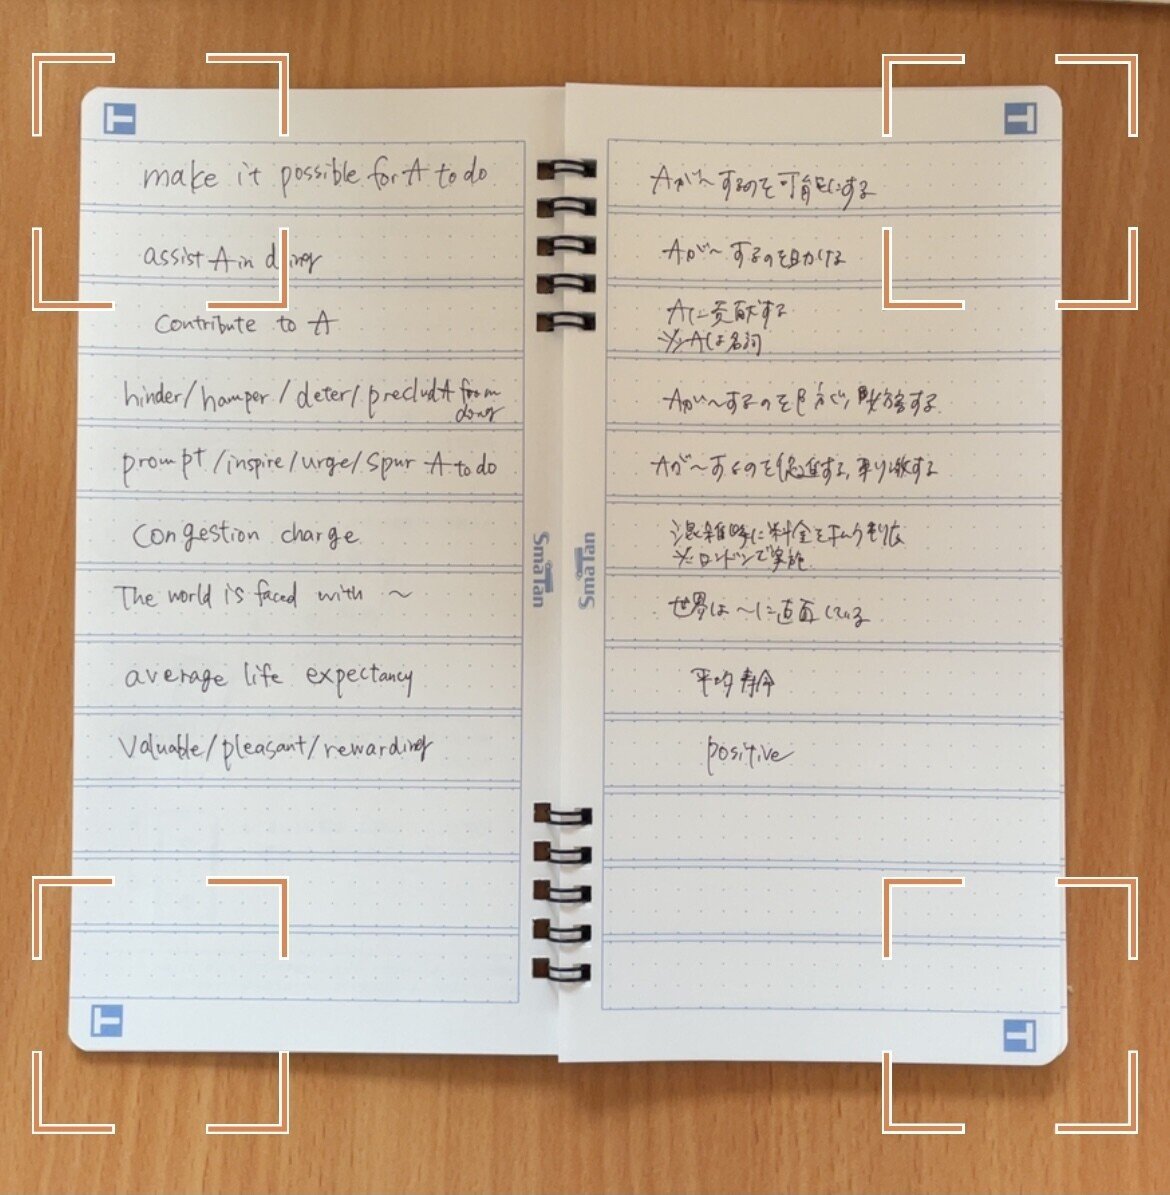 make it possible for A to do
assist A in doing
Contribute to A
hinder/hamper/deter/preclud A from
doing
prompt/inspire/urge/spur A to do
Congestion charge
The world is faced with ~
average life expectancy
Valuable/pleasant/rewarding
SmaTan
SmaTan
Aが~するのを可能にする
Aが~するのを助ける
Aに貢献する
※Aは名詞
Aが~するのを防ぐ,妨害する
Aが~するのを促進する,
混雑時に料金を払う
※ロンドンで実施
世界は~に直面している
平均寿命
positive